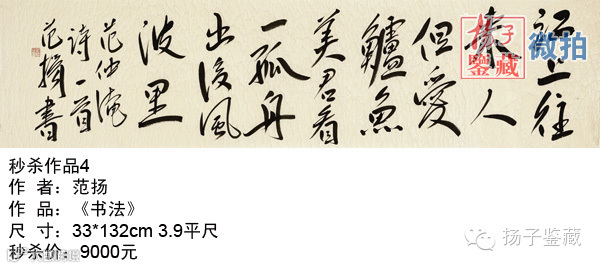 江上往
來人
但愛
鱸魚
美君看
一孤舟
出没風
波里
范仲淹
詩一首
范揚書
扬子
鉴藏
微拍
秒杀作品4
作 者：范扬
作 品：《书法》
尺 寸：33*132cm 3.9平尺
秒杀价：9000元
扬子鉴藏